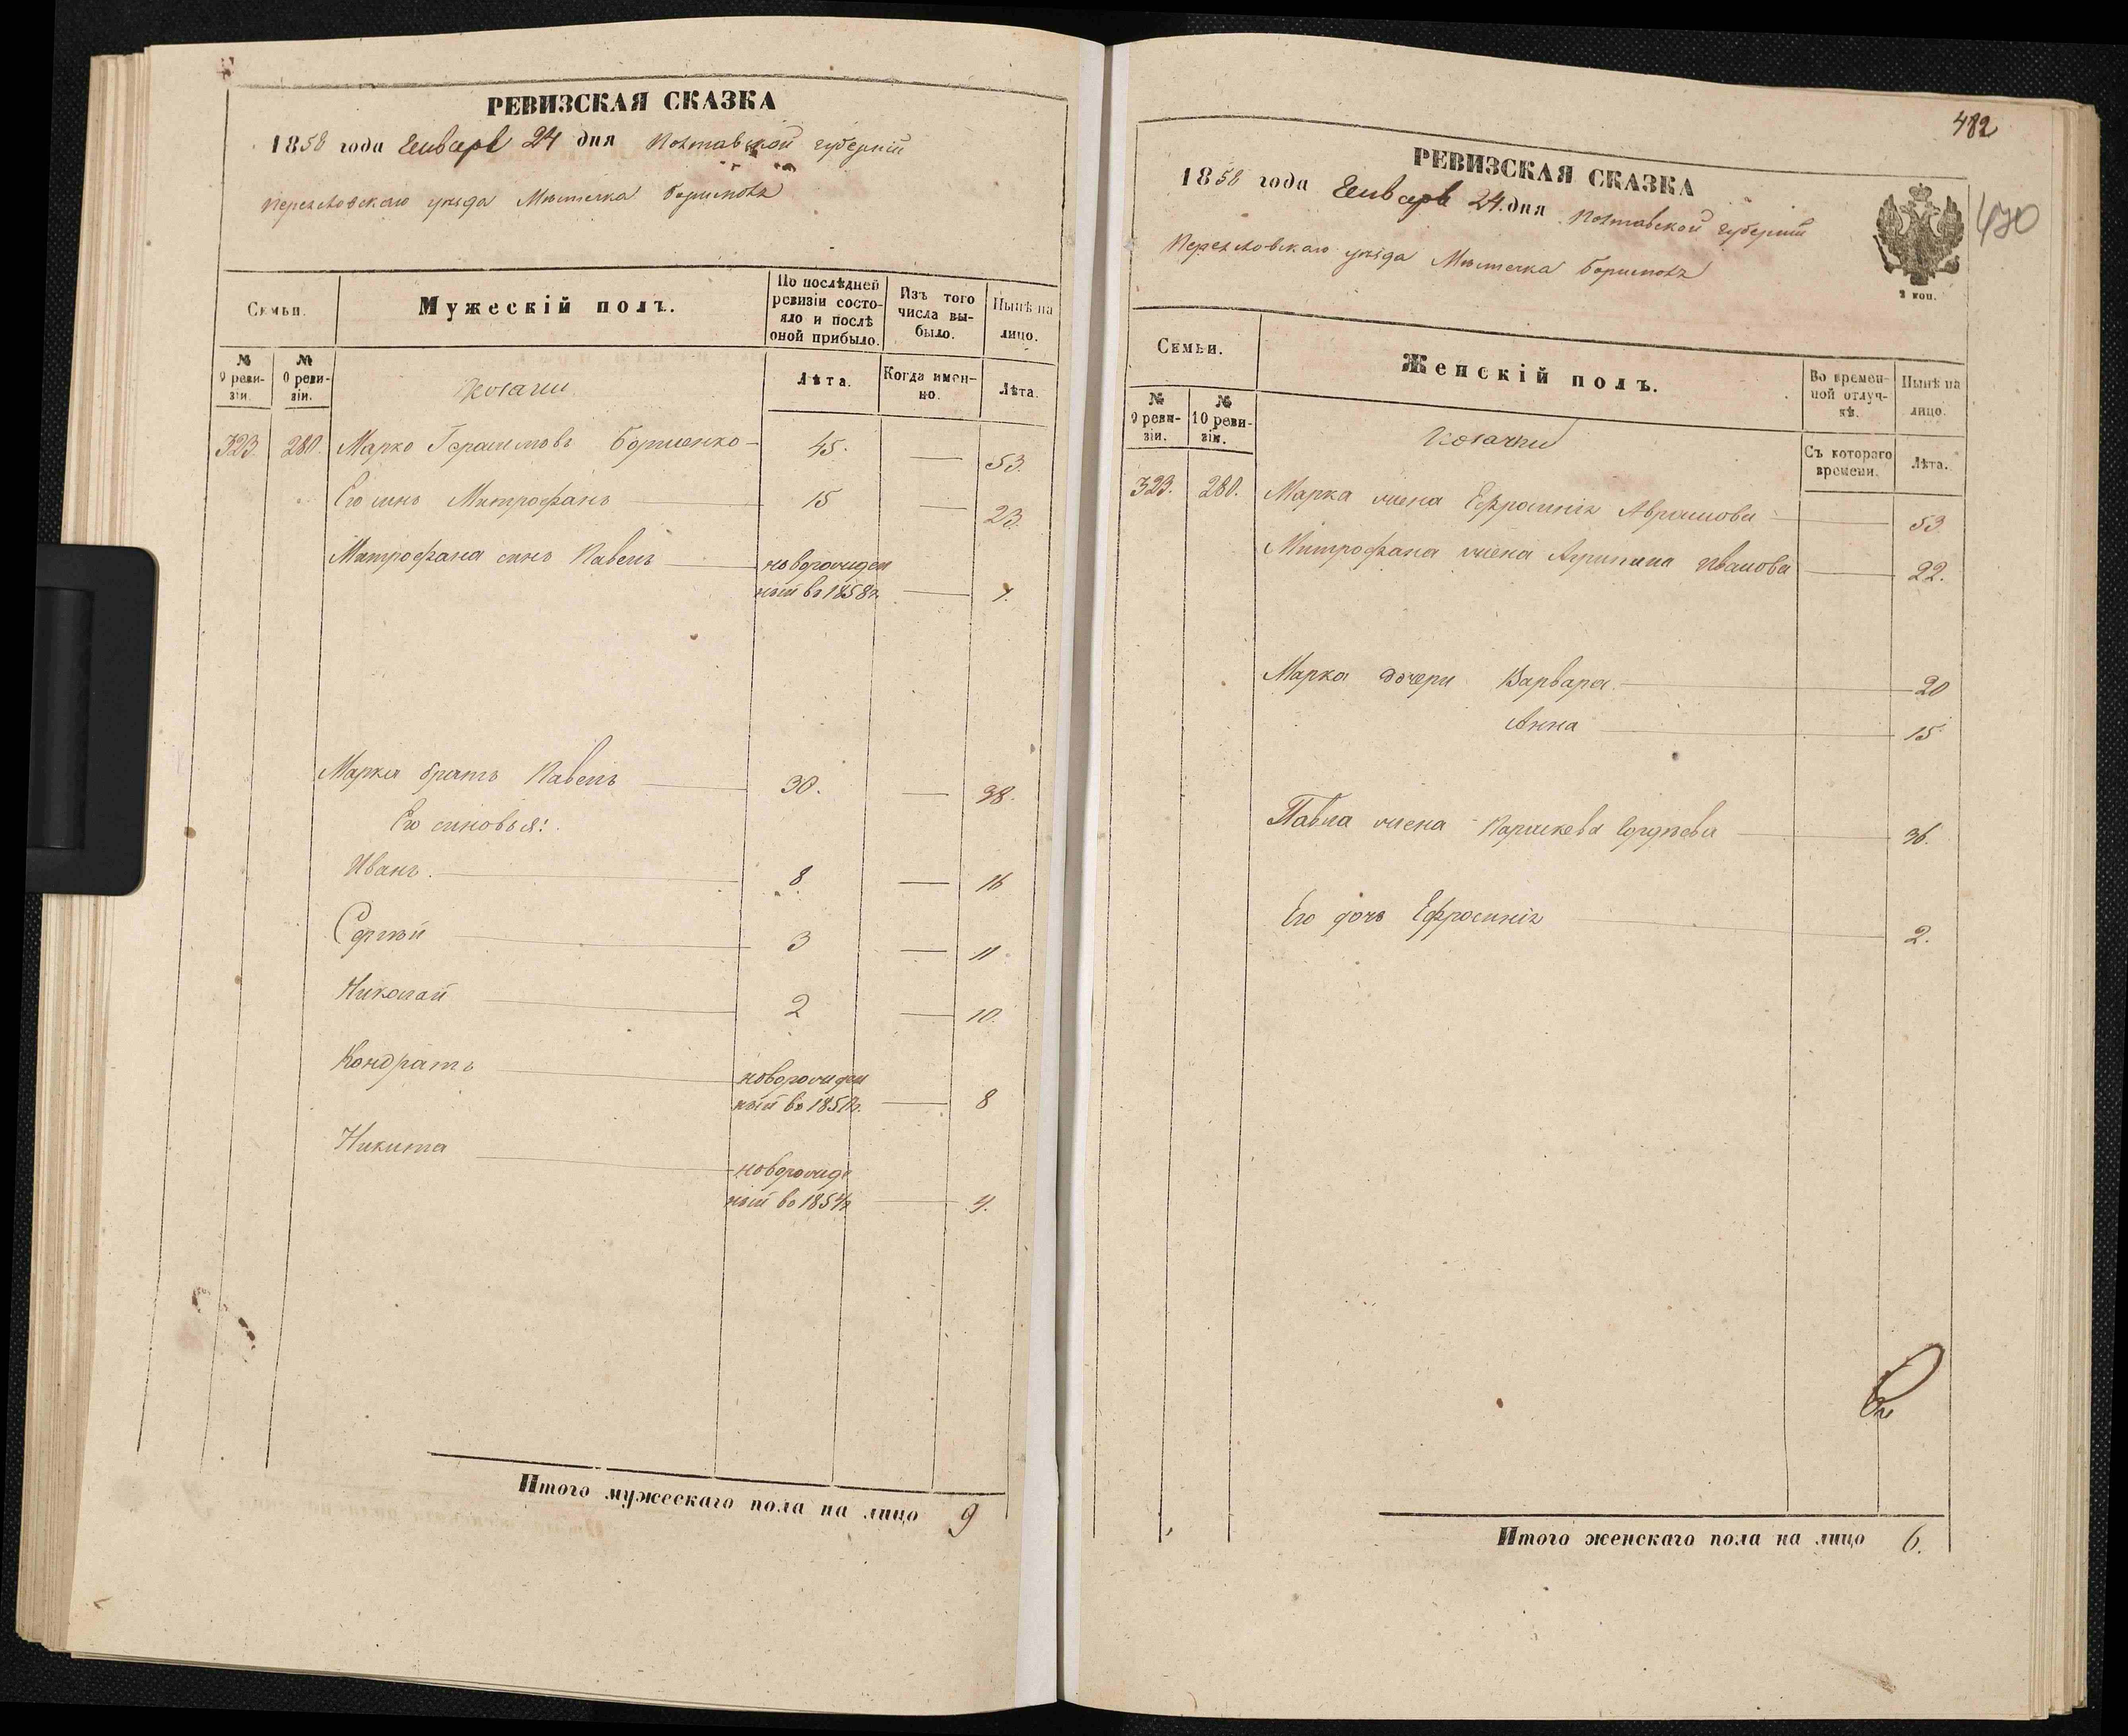 РЕВИЗСКАЯ СКАЗКА
1858 года Генваря 24 дня Полтавской губерніи
Переяловскаго уезда Местечка Борисполя
Семьи.
Мужескій полъ.
По послѣдней ревизіи состо-
яло и послѣ
оной прибыло.
Изъ того
числа вы-
было.
Нынѣ на
лицо.
№
9 реви-
зіи.
№
0 реви-
зіи.
Козаки
Лѣта.
Когда имен-
но.
Лѣта.
323. 280. Марко Герасимовъ 45. — 53.
Его синъ Митрофанъ 15 — 23.
Митрофана синъ Павелъ новорожден
ный въ 1858г. —
Марка братъ Павелъ 30. — 38.
Его синовья:
Иванъ. 8. — 16
Сергѣй 3 — 11
Николай 2 — 10.
Кондратъ новорожден
ный въ 1850г. — 8
Никита новорожде
ный въ 1854г. — 4.
Итого мужескаго пола на лицо 9
482
470
РЕВИЗСКАЯ СКАЗКА
1858 года Генваря 24 дня Полтавской губерніи
Переяловскаго уезда Местечка Борисполя
2 коп.
Семьи.
Женскій полъ.
Во времен-
ной отлуч-
кѣ.
Нынѣ на
лицо.
№
9 реви-
зіи.
№
10 реви-
зіи.
Козачки
Съ котораго
времени.
Лѣта.
323. 280. Марка жена Ефросинія Аврамова 53
Митрофана жена Агрипина Иванова 22.
Марка дочери Варвара 20
Анна 15
Павла жена Параскева Гордѣева 36.
Его дочь Ефросинія 2.
Итого женскаго пола на лицо 6.